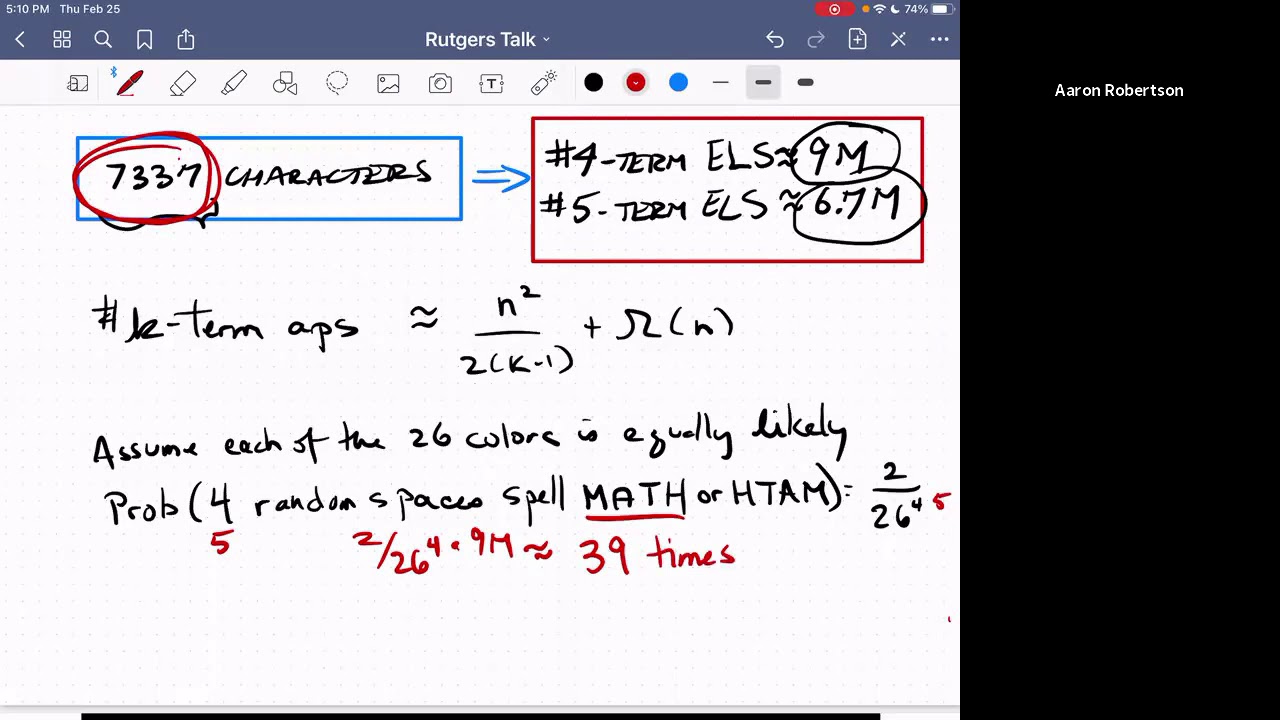 5:10 PM Thu Feb 25 74%
Rutgers Talk
T
Aaron Robertson
7337 CHARACTERS ⇒ #4-TERM ELS ≈ 9M
#5-TERM ELS ≈ 6.7M
#k-term aps ≈ n²/2(k-1) + Ω(n)
Assume each of the 26 colors is equally likely
Prob(4 random spaces spell MATH or HTAM) = 2/26⁴ 5
5 2/26⁴ · 9M ≈ 39 times